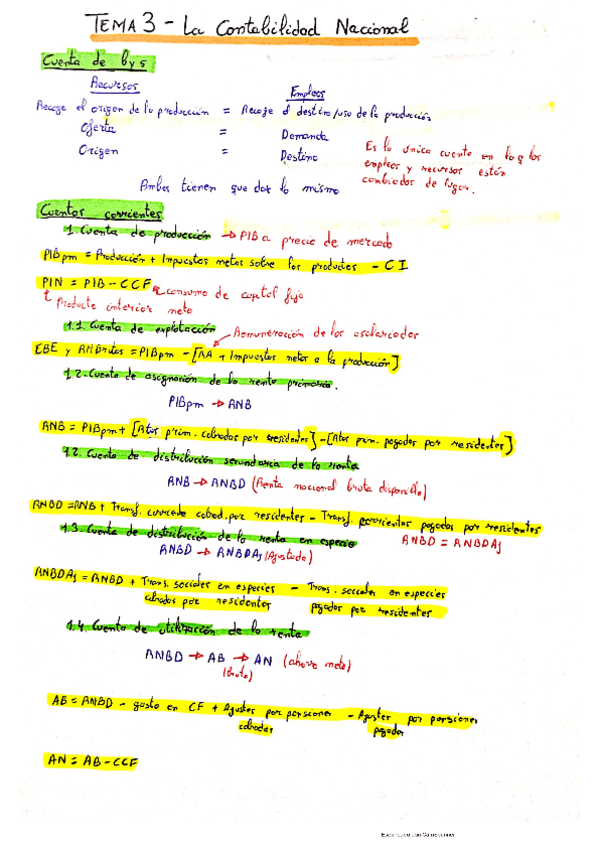 TEMA 3 - La Contabilidad Nacional
Cuenta de bys
Recursos Empleos
Recoge el origen de la producción = Recoge el destino/uso de la producción
Oferta = Demanda
Origen = Destino
Es la única cuenta en la q los
empleos y recursos están
cambiados de lugar.
Ambas tienen que dar lo mismo
Cuentas corrientes
1. Cuenta de producción → PIB a precio de mercado
PIBpm = Producción + Impuestos netos sobre los productos - CI
PIN = PIB - CCF consumo de capital fijo
Producto interior neto
1.1. Cuenta de explotación Remuneración de los asalariados
EBE y RMBrutas = PIBpm - [RA + Impuestos netos a la producción]
1.2. Cuenta de asignación de la renta primaria.
PIBpm → RNB
RNB = PIBpm + [Rtas prim. cobradas por residentes] - [Rtas prim. pagadas por residentes]
1.2. Cuenta de distribución secundaria de la renta
RNB → RNBD (Renta nacional bruta disponible)
RNBD = RNB + Transf. corriente cobad. por residentes - Transf. corrientes pagadas por residentes
1.3. Cuenta de distribución de la renta en especie RNBD = RNBDAj
RNBD → RNBDAj (Ajustada)
RNBDAj = RNBD + Trans. sociales en especies - Trans. sociales en especies
cobradas por residentes pagadas por residentes
1.4. Cuenta de utilización de la renta
RNBD → AB → AN (ahorro neto)
(bruto)
AB = RNBD - gasto en CF + Ajustes por pensiones - Ajustes por pensiones
cobradas pagadas
AN = AB - CCF